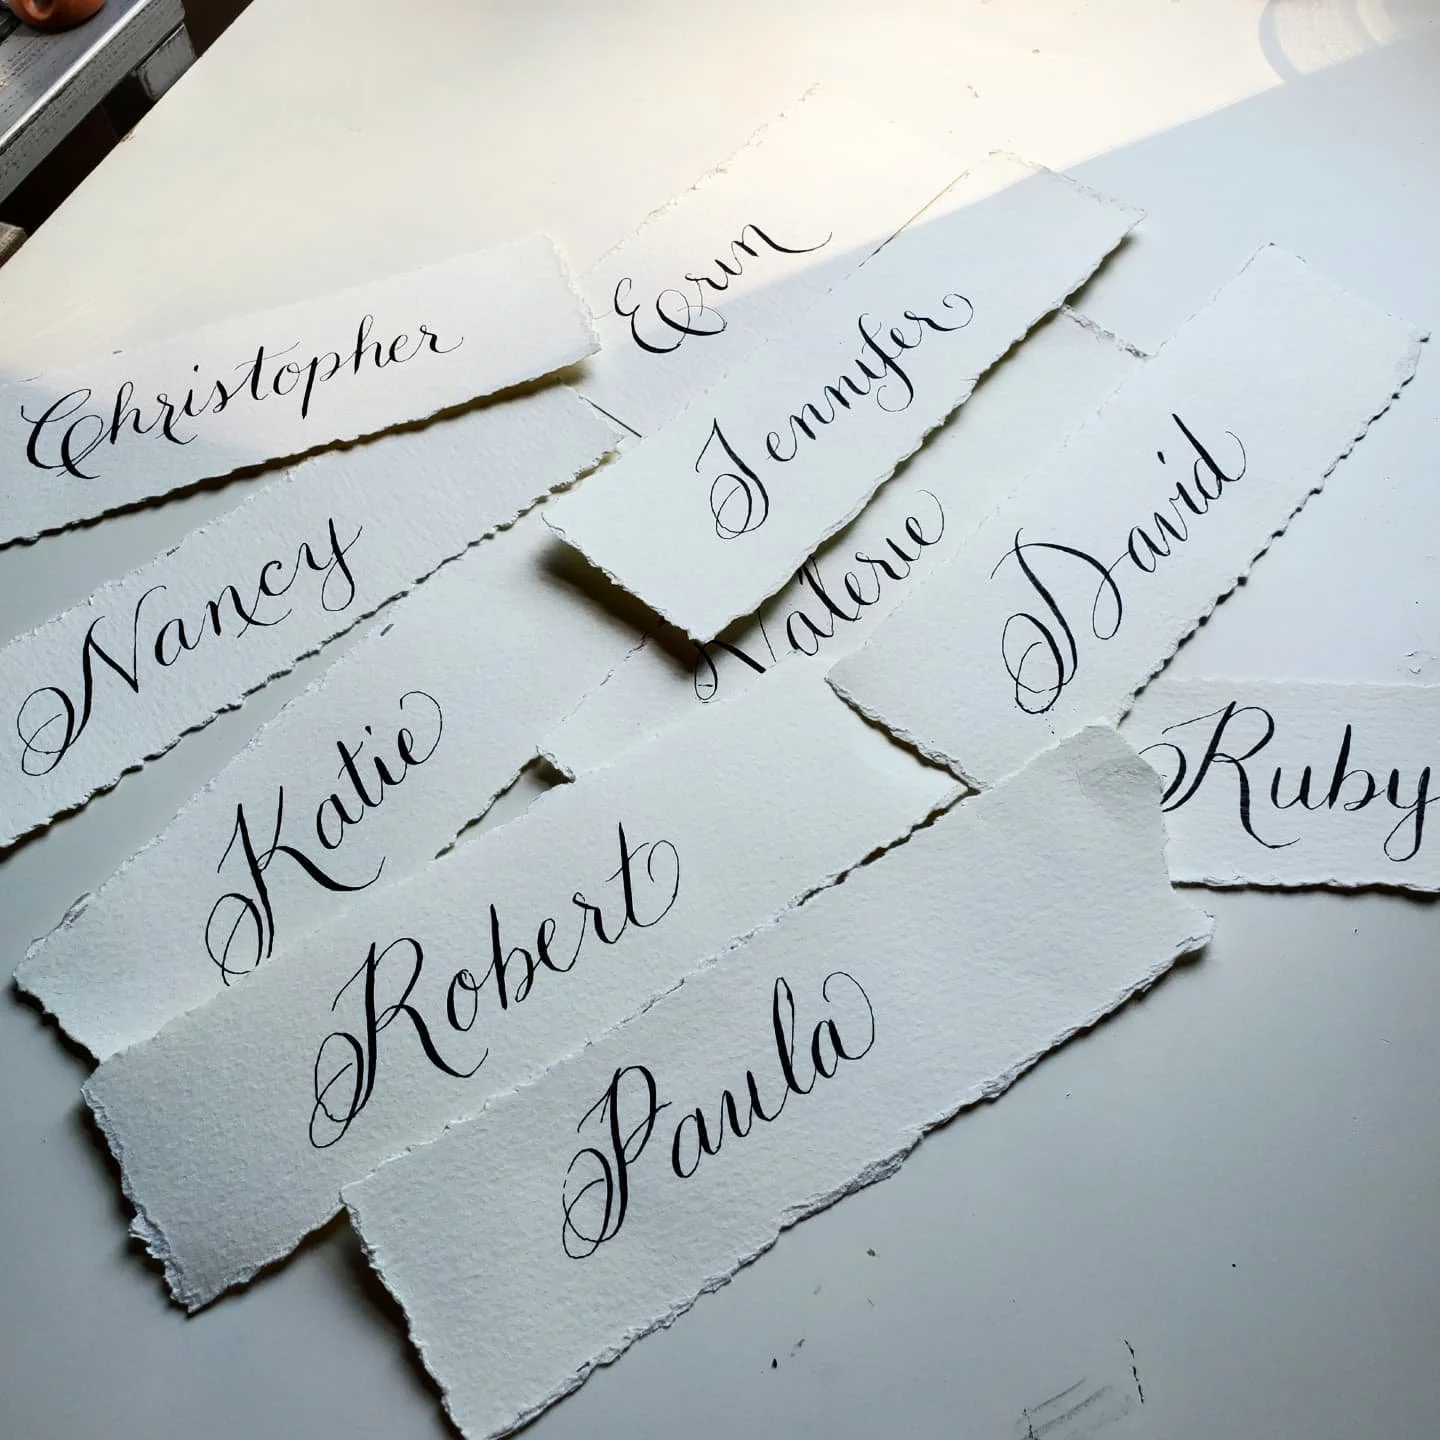 Erin
Christopher
Jennifer
Nancy
Valerie
David
Katie
Ruby
Robert
Paula